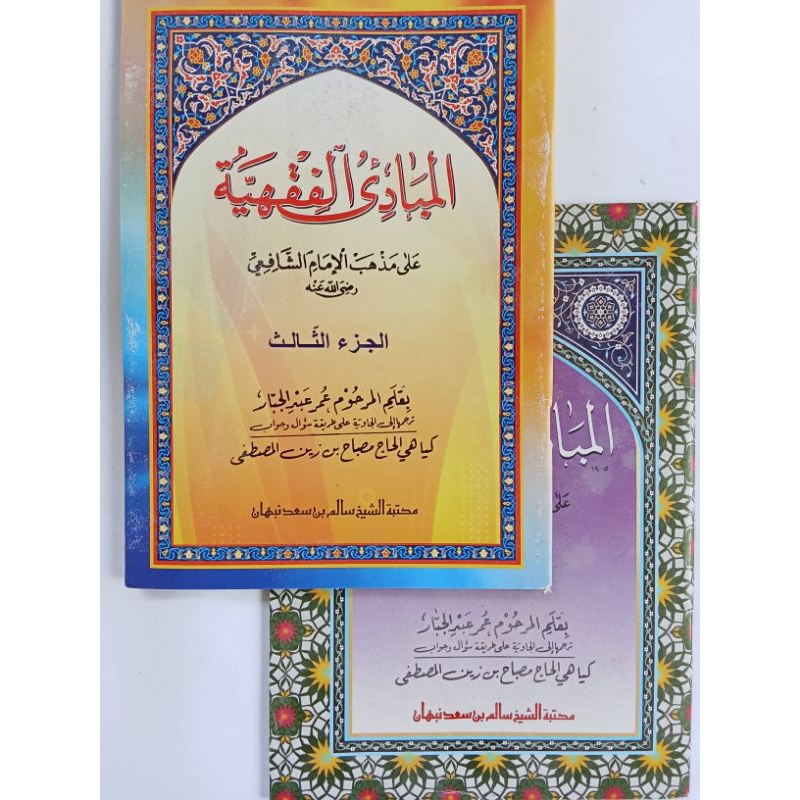 المبادئ الفقهية
على مذهب الإمام الشافعي
رضي الله عنه
الجزء الثالث
بقلم المرحوم عمر عبد الجبار
ترجمها إلى الجاوية على طريقة سؤال وجواب
كياهي الحاج مصباح بن زين المصطفى
مكتبة الشيخ سالم بن سعد نبهان
على
بقلم المرحوم عمر عبد الجبار
ترجمها إلى الجاوية على طريقة سؤال وجواب
كياهي الحاج مصباح بن زين المصطفى
مكتبة الشيخ سالم بن سعد نبهان